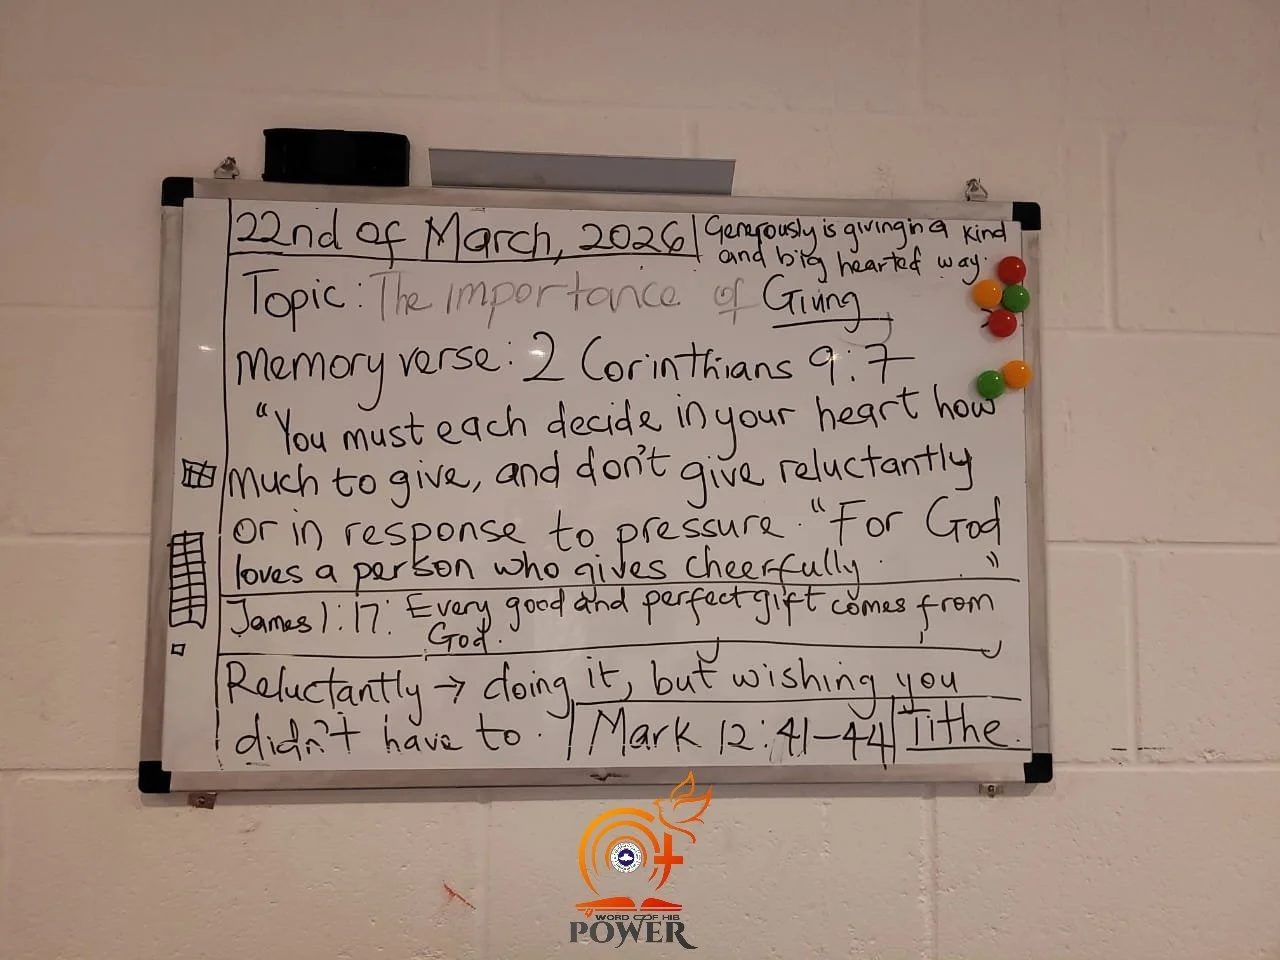 22nd of March, 2026
Generously is giving in a kind
and big hearted way.
Topic: The importance of Giving
Memory verse: 2 Corinthians 9:7
"You must each decide in your heart how
much to give, and don't give reluctantly
or in response to pressure. "For God
loves a person who gives cheerfully. "
James 1:17: Every good and perfect gift comes from
God.
Reluctantly → doing it, but wishing you
didn't have to.
Mark 12:41-44
Tithe.
WORD OF HIS
POWER